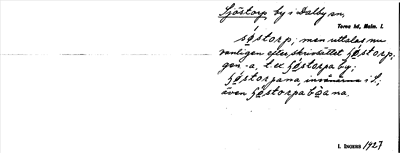 Sjöstorp by i Dalby sn,
Torna hd, Malm. l.
sǿstorp; men uttalas nu
vanligen efter skriftettet hǿstorp;
gen -a, t ex hǿstorpa by;
hǿstorpana, invånarna i S;
även hǿstorpabôana.
I. INGERS 1927